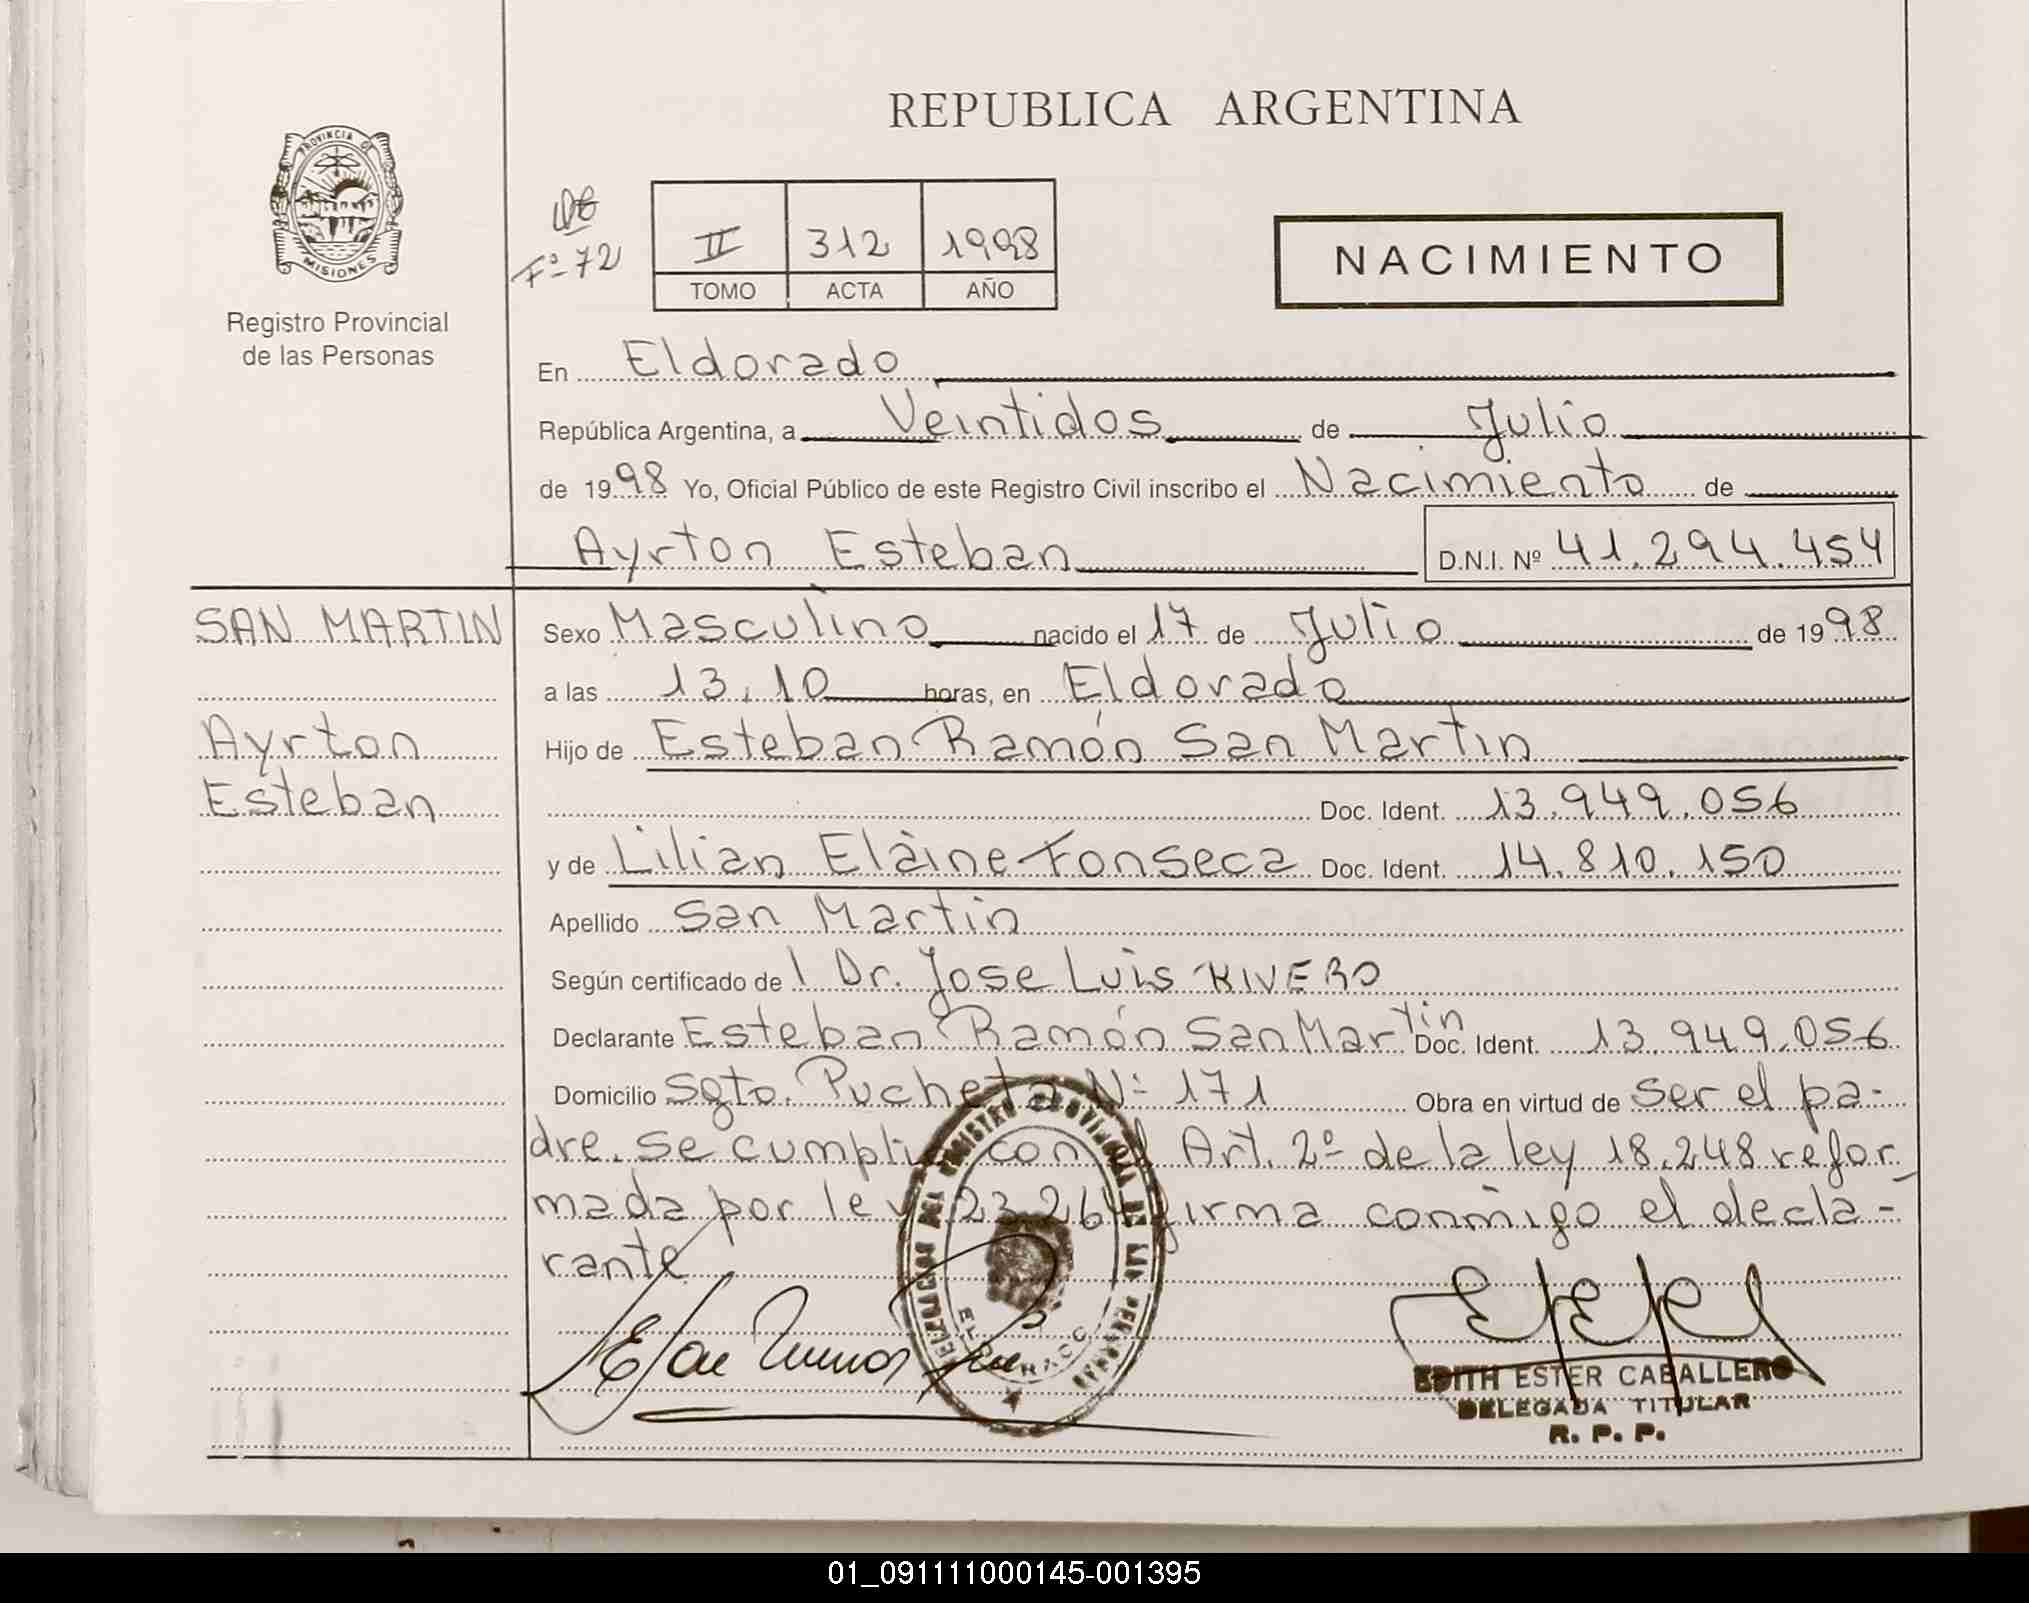 REPUBLICA ARGENTINA
PROVINCIA DE
MISIONES
Registro Provincial
de las Personas
Fº 72
II 312 1998
TOMO ACTA AÑO
NACIMIENTO
En Eldorado
República Argentina, a Veintidos de Julio
de 1998 Yo, Oficial Público de este Registro Civil inscribo el Nacimiento de
Ayrton Esteban D.N.I. Nº 41.294.454
SAN MARTIN
Ayrton
Esteban
Sexo Masculino nacido el 17 de Julio de 1998
a las 13.10 horas, en Eldorado
Hijo de Esteban Ramón San Martin
Doc. Ident. 13.949.056
y de Lilian Elaine Fonseca Doc. Ident. 14.810.150
Apellido San Martin
Según certificado de l Dr. Jose Luis RIVERO
Declarante Esteban Ramón San Martin Doc. Ident. 13.949.056
Domicilio Sgto. Pucheta Nº 171 Obra en virtud de ser el pa-
dre. Se cumplió con el Art. 2º de la ley 18.248 refor
mada por ley 23.264 firma conmigo el decla-
rante
DEL REGISTRO PROVINCIAL DE LAS PERSONAS
ELDORADO
EDITH ESTER CABALLERO
DELEGADA TITULAR
R. P. P.
01_091111000145-001395